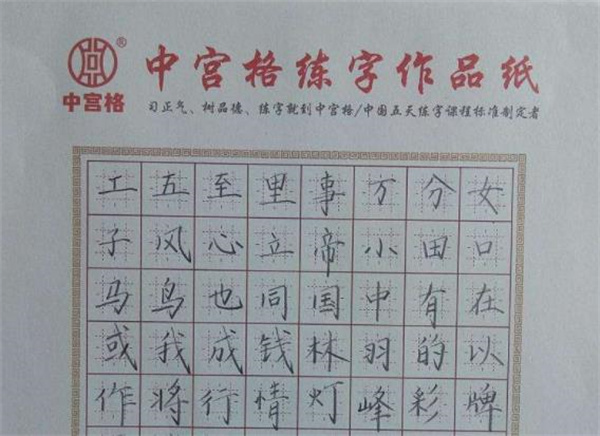 中宫格练字作品纸
®
中宫格
习正气、树品德、练字就到中宫格/中国五天练字课程标准制定者
工五至里事万分女
子风心立帝小田口
马鸟也同国中有在
或我成钱林羽的以
作将行情灯峰彩牌